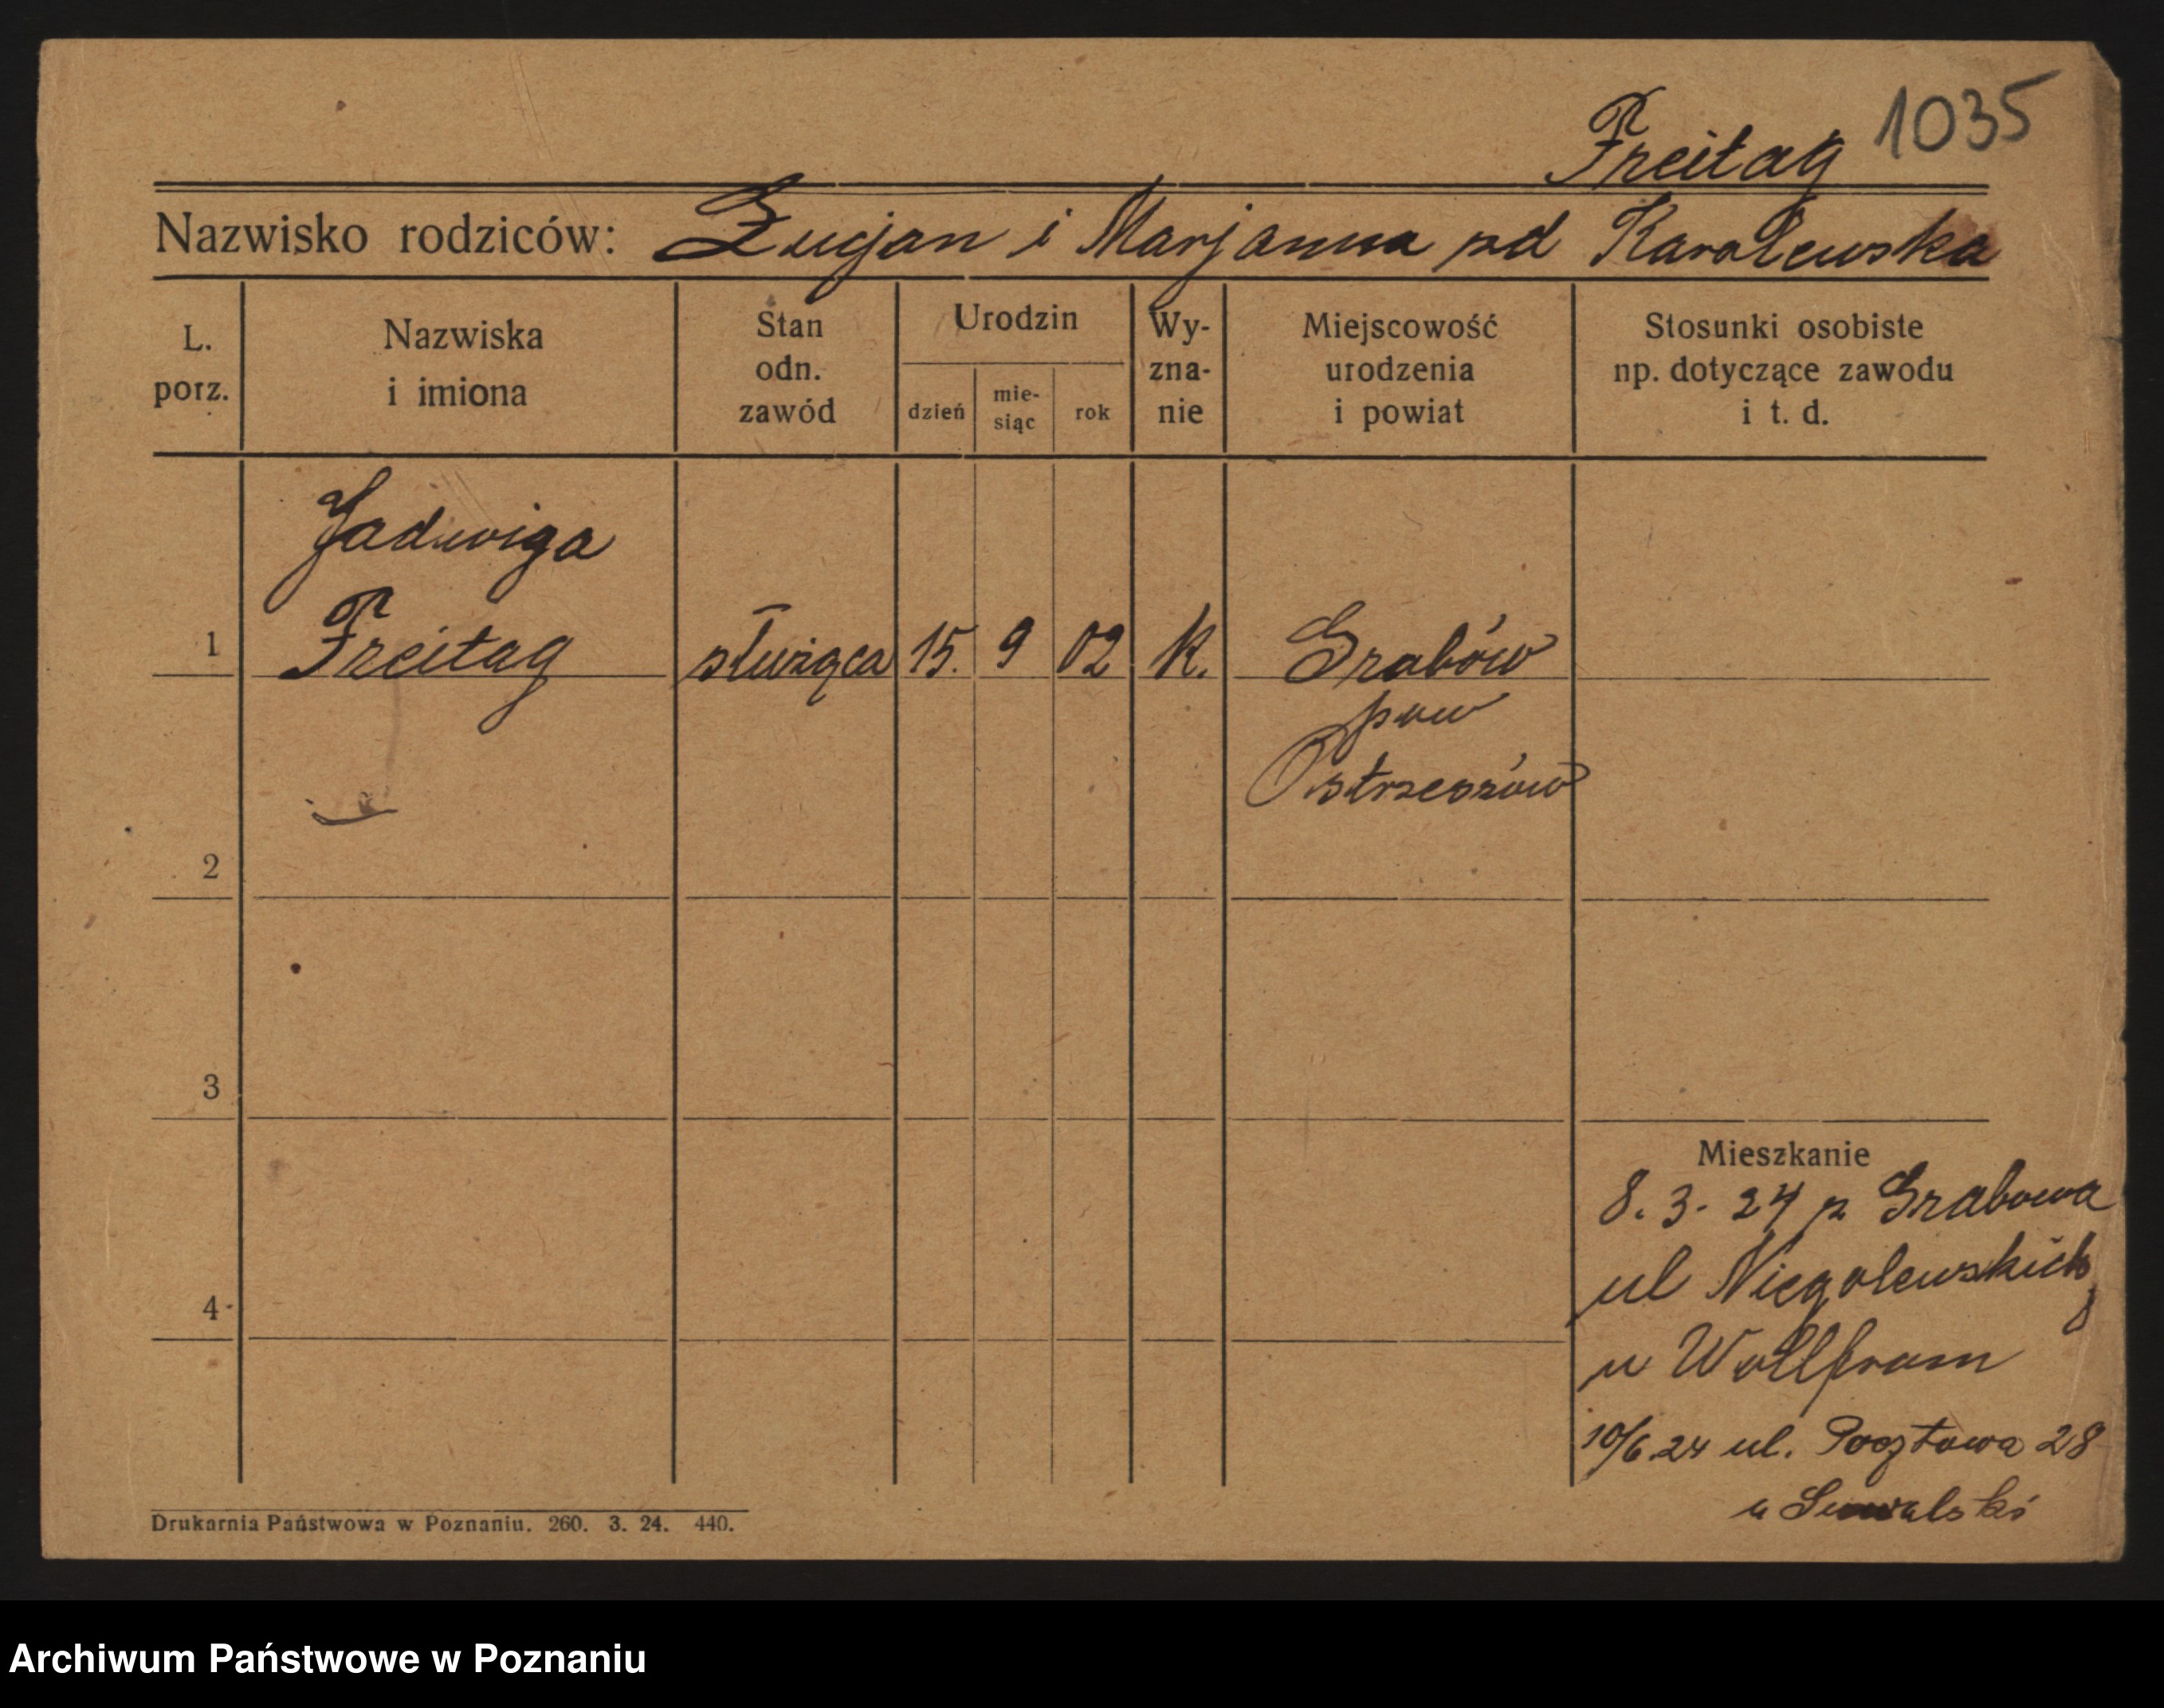 Freitag 1035
Nazwisko rodziców: Lucjan i Marjanna zd Karolewska
L. porz.
Nazwiska i imiona
Stan odn. zawód
Urodzin
dzień
mie-siąc
rok
Wy-zna-nie
Miejscowość urodzenia i powiat
Stosunki osobiste np. dotyczące zawodu i t. d.
Jadwiga
1 Freitag służąca 15. 9 02 K. Grabów
pow
Ostrzeszów
2
3
Mieszkanie
8. 3. 24 z Grabowa
ul Niegolewskich
4
u Wollfram
10/6.24 ul. Pocztowa 28
u
Drukarnia Państwowa w Poznaniu. 260. 3. 24. 440.
Archiwum Państwowe w Poznaniu